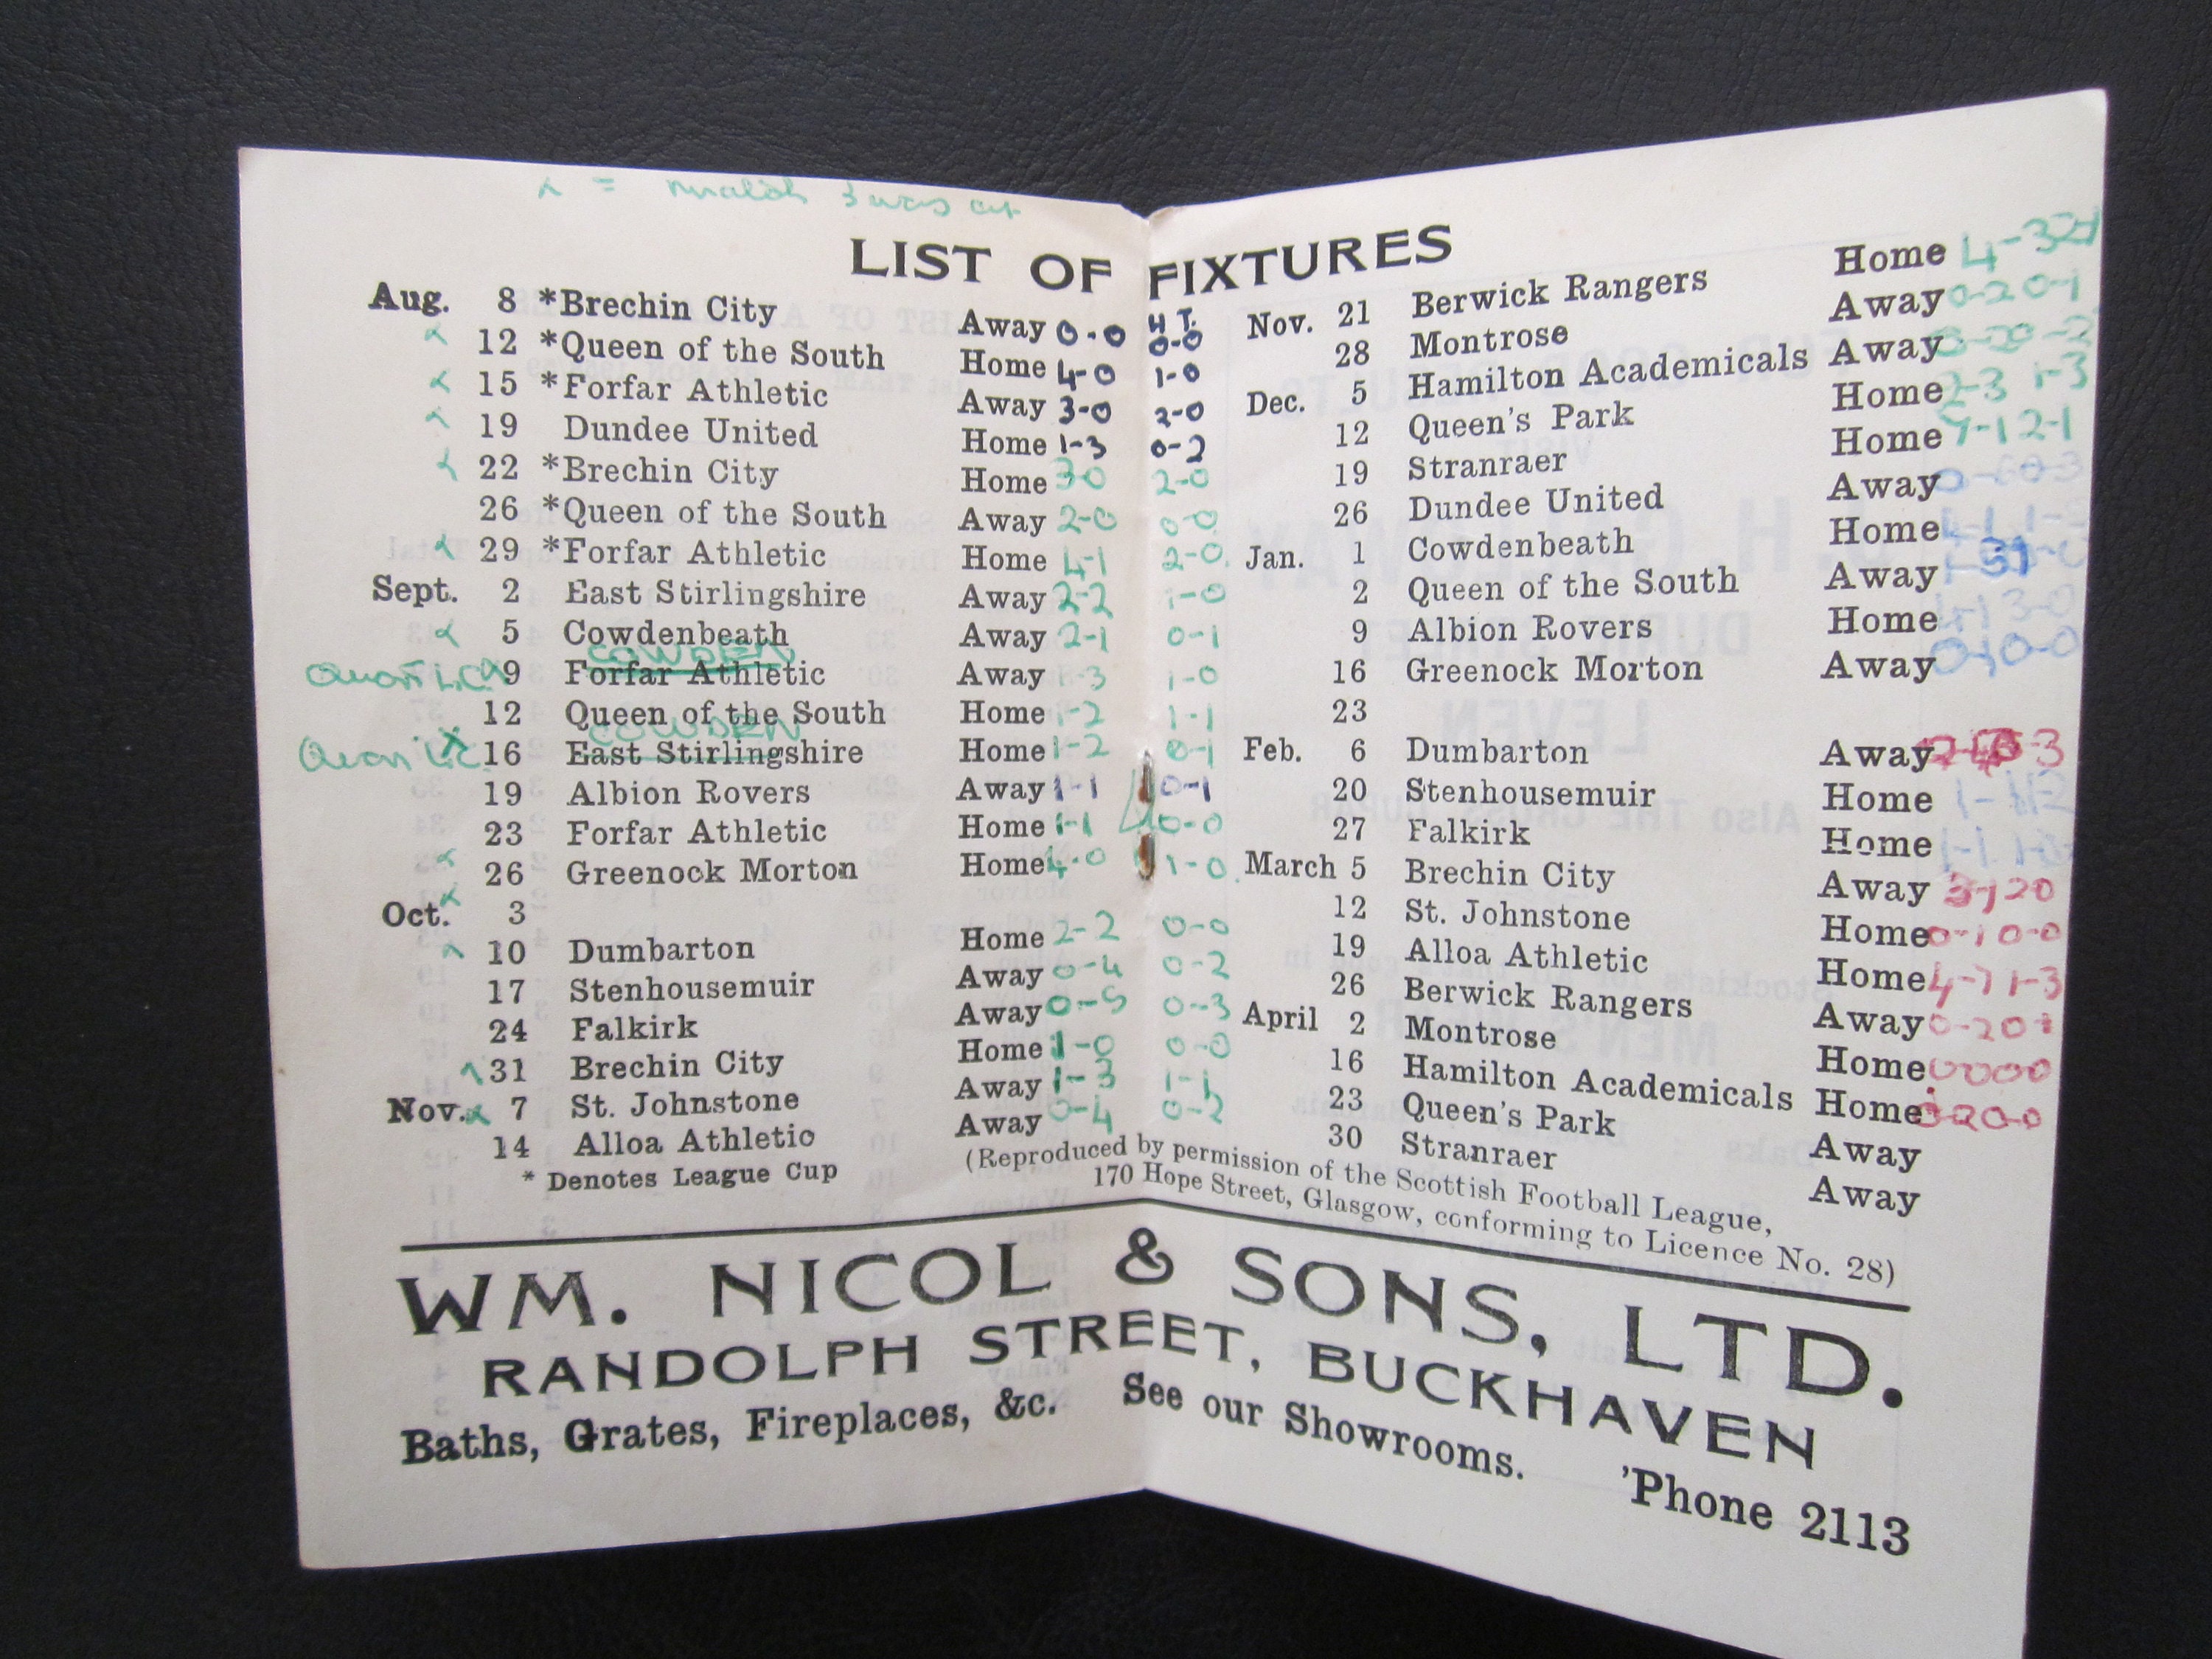 = match I was at
LIST OF FIXTURES
Aug. 8 *Brechin City Away 0-0 H T. 0-0
12 *Queen of the South Home 4-0 1-0
15 *Forfar Athletic Away 3-0 2-0
19 Dundee United Home 1-3 0-2
22 *Brechin City Home 3-0 2-0
26 *Queen of the South Away 2-0 0-0
29 *Forfar Athletic Home 4-1 2-0
Sept. 2 East Stirlingshire Away 2-2 1-0
5 Cowdenbeath Away 2-1 0-1
COWDEN
9 Forfar Athletic Away 1-3 1-0
12 Queen of the South Home 1-2 1-1
COWDEN
16 East Stirlingshire Home 1-2 0-1
19 Albion Rovers Away 1-1 0-1
23 Forfar Athletic Home 1-1 0-0
26 Greenock Morton Home 4-0 1-0
Oct. 3
10 Dumbarton Home 2-2 0-0
17 Stenhousemuir Away 0-4 0-2
24 Falkirk Away 0-5 0-3
31 Brechin City Home 1-0 0-0
Nov. 7 St. Johnstone Away 1-3 1-1
14 Alloa Athletic Away 0-4 0-2
* Denotes League Cup
Nov. 21 Berwick Rangers Home 4-3
28 Montrose Away 0-2 0-1
Dec. 5 Hamilton Academicals Away
12 Queen's Park Home 2-3 1-3
19 Stranraer Home 2-1
26 Dundee United Away
Jan. 1 Cowdenbeath Home
2 Queen of the South Away
9 Albion Rovers Home 4-1 3-0
16 Greenock Morton Away 0-0
23
Feb. 6 Dumbarton Away
20 Stenhousemuir Home
27 Falkirk Home
March 5 Brechin City Away 3-1 20
12 St. Johnstone Home 0-1 0-0
19 Alloa Athletic Home 1-3
26 Berwick Rangers Away 0-2
April 2 Montrose Home 0000
16 Hamilton Academicals Home
23 Queen's Park Away
30 Stranraer Away
(Reproduced by permission of the Scottish Football League,
170 Hope Street, Glasgow, conforming to Licence No. 28)
WM. NICOL & SONS, LTD.
RANDOLPH STREET, BUCKHAVEN
Baths, Grates, Fireplaces, &c. See our Showrooms. 'Phone 2113